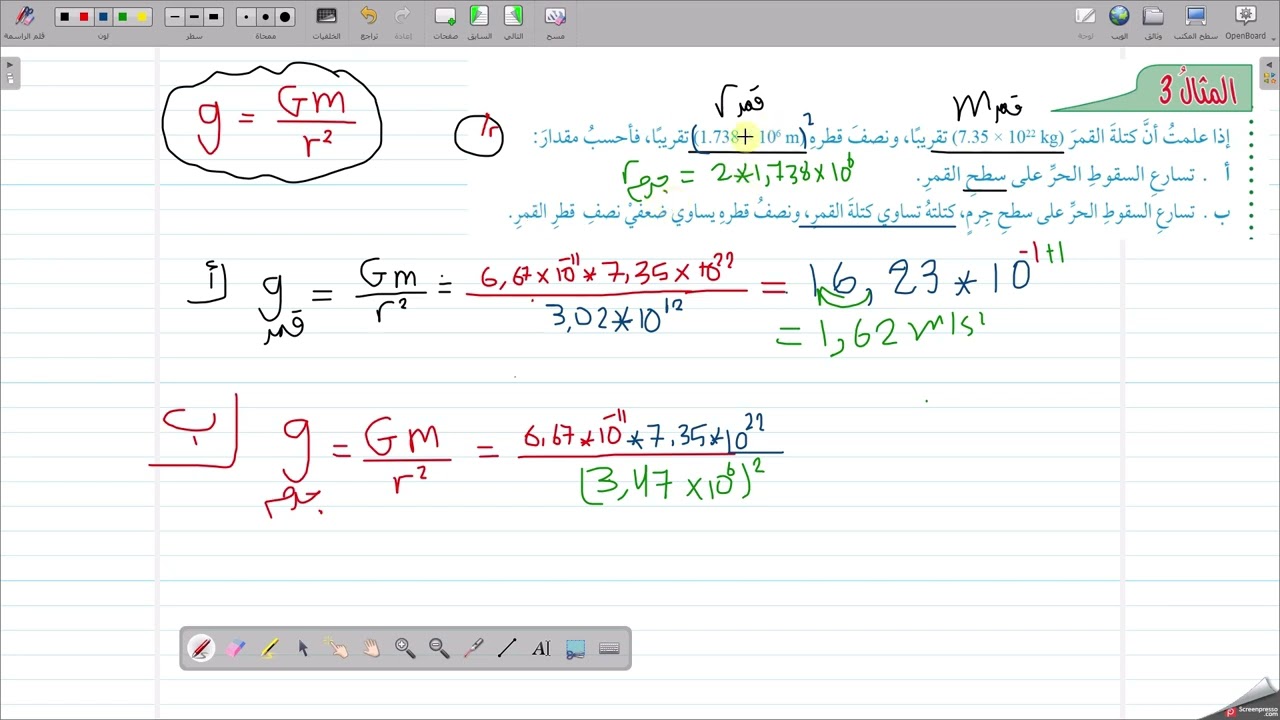 قلم الراسمة
لون
سطر
ممحاة
الخلفيات
تراجع
إعادة
صفحات
السابق
التالي
مسح
لوحة
الويب
وثائق
سطح المكتب
OpenBoard
المثالُ 3
g = Gm / r²
r قمر
m قمر
إذا علمتُ أنَّ كتلةَ القمرَ (7.35 × 10²² kg) تقريبًا، ونصفَ قطرهِ (1.738 10⁶ m)² تقريبًا، فأحسبُ مقدارَ:
r جرم = 2*1,738×10⁶
أ . تسارعِ السقوطِ الحرِّ على سطحِ القمرِ.
ب . تسارعِ السقوطِ الحرِّ على سطحِ جِرمٍ، كتلتهُ تساوي كتلةَ القمرِ، ونصفُ قطرهِ يساوي ضعفَيْ نصفِ قطرِ القمرِ.
أ g قمر = Gm / r² = 6,67×10⁻¹¹ * 7,35×10²² / 3,02*10¹² = 16,23*10⁻¹⁺¹
= 1,62 m/s²
ب g جرم = Gm / r² = 6,67*10⁻¹¹ * 7,35*10²² / (3,47×10⁶)²
Screenpresso
.com